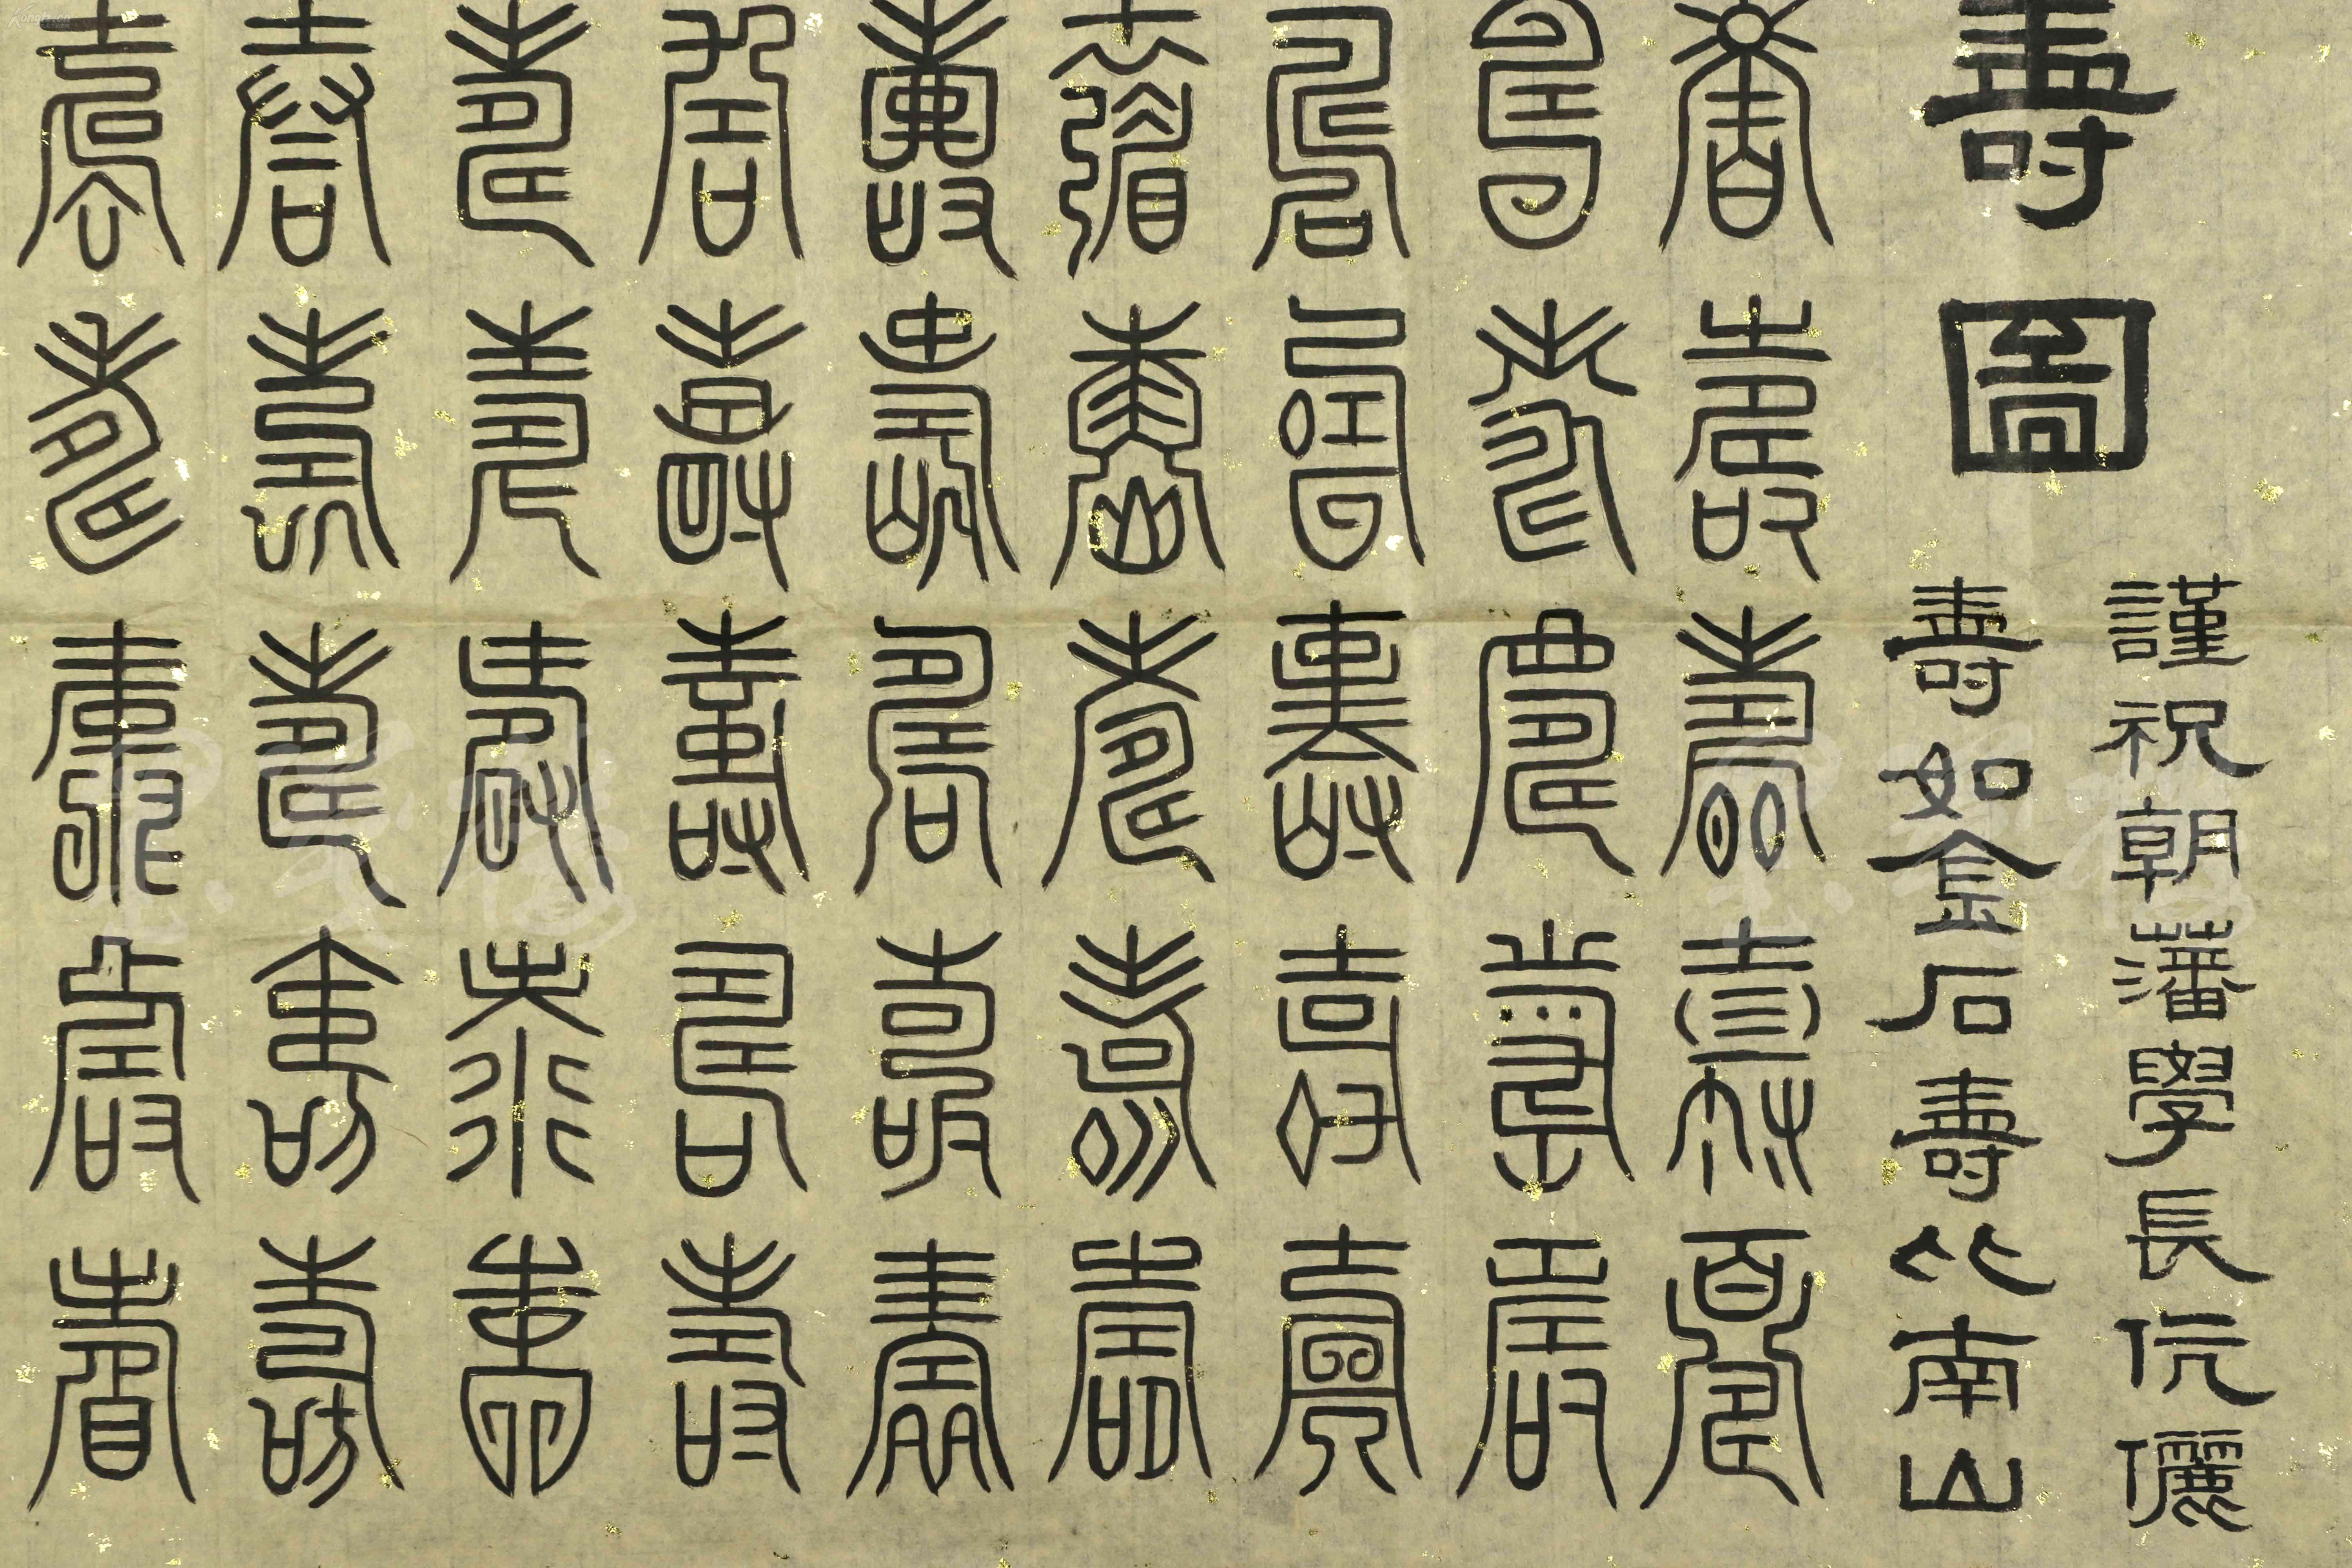 壽圖
謹祝朝藩學長伉儷
壽如金石壽比南山
壽壽壽壽壽
壽壽壽壽壽
壽壽壽壽壽
壽壽壽壽壽
壽壽壽壽壽
壽壽壽壽壽
壽壽壽壽壽
壽壽壽壽壽
壽壽壽壽壽